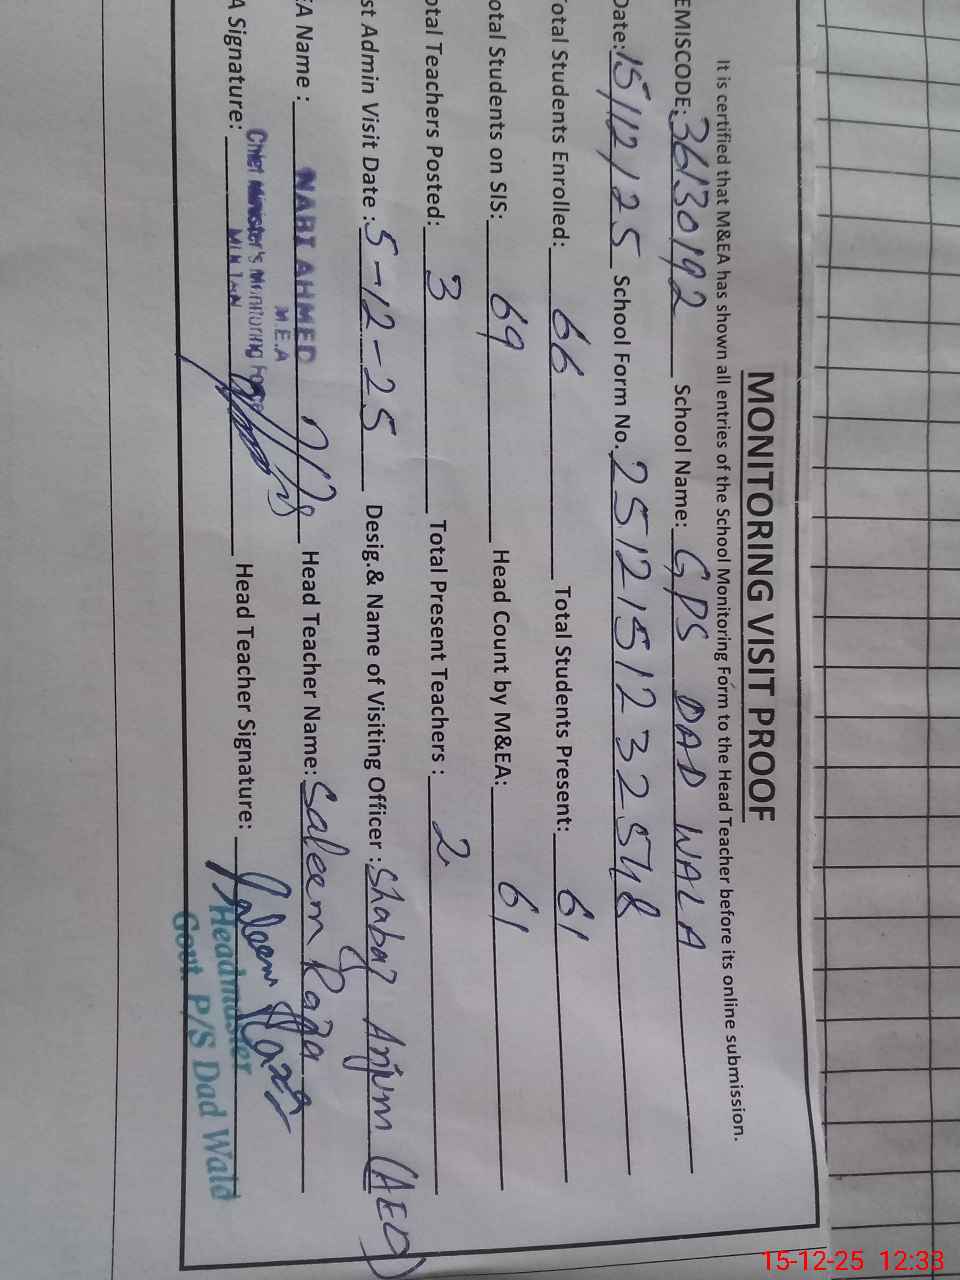 MONITORING VISIT PROOF
It is certified that M&EA has shown all entries of the School Monitoring Form to the Head Teacher before its online submission.
EMISCODE: 36130192 School Name: GPS DAD WALA
Date: 15/12/25 School Form No. 2512151232548
otal Students Enrolled: 66 Total Students Present: 61
otal Students on SIS: 69 Head Count by M&EA: 61
otal Teachers Posted: 3 Total Present Teachers : 2
st Admin Visit Date : 5-12-25 Desig.& Name of Visiting Officer : Shabaz Anjum (AEO)
EA Name : NABI AHMED Head Teacher Name: Saleem Raza
M.E.A
Chief Minister's Monitoring Force
A Signature: Head Teacher Signature: Saleem Raza
Headmaster
Govt P/S Dad Wala
15-12-25 12:33